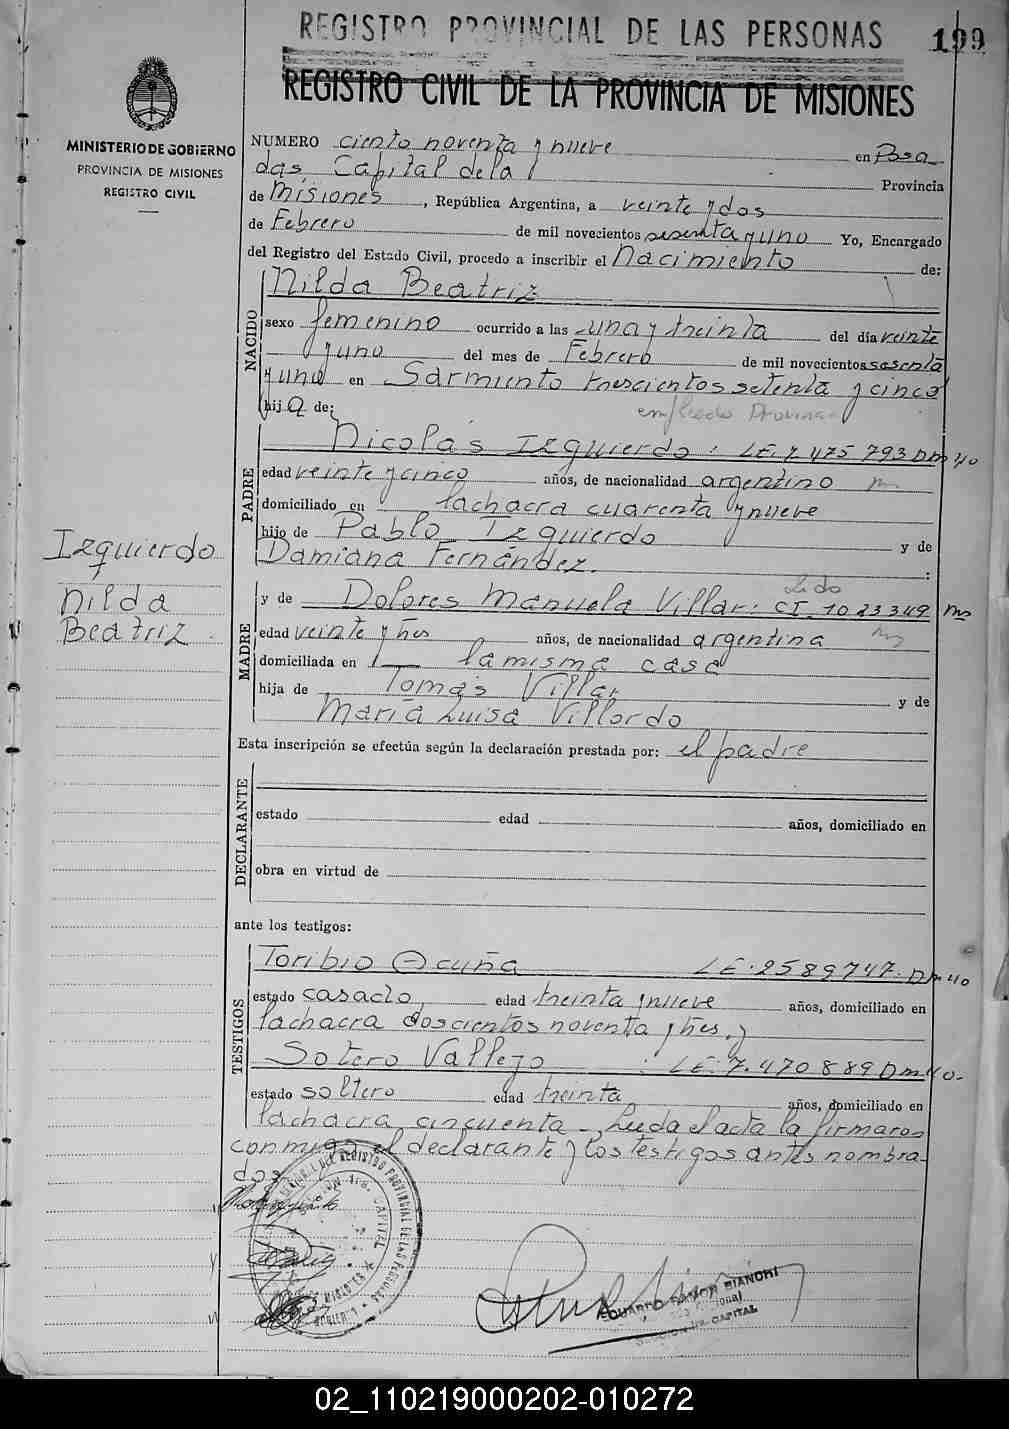 REGISTRO PROVINCIAL DE LAS PERSONAS
199
REGISTRO CIVIL DE LA PROVINCIA DE MISIONES
MINISTERIO DE GOBIERNO
PROVINCIA DE MISIONES
REGISTRO CIVIL
NUMERO ciento noventa y nueve en Posa
das Capital de la Provincia
de Misiones, República Argentina, a veinte y dos
de Febrero de mil novecientos sesenta y uno Yo, Encargado
del Registro del Estado Civil, procedo a inscribir el Nacimiento de:
NACIDO
Nilda Beatriz
sexo femenino ocurrido a las una y treinta del día veinte
y uno del mes de Febrero de mil novecientos sesenta
y uno en Sarmiento trescientos setenta y cinco
hija de: empleado Provincial
PADRE
Nicolás Izquierdo: LE. 7.475.793 Dm 40
edad veinte y cinco años, de nacionalidad argentino
domiciliado en la chacra cuarenta y nueve
hijo de Pablo Izquierdo y de
Damiana Fernández.
Izquierdo
Nilda
Beatriz
MADRE
y de Dolores Manuela Villar: CI. 1023349 ms
edad veinte y tres años, de nacionalidad argentina
domiciliada en la misma casa
hija de Tomás Villar y de
María Luisa Villordo
Esta inscripción se efectúa según la declaración prestada por: el padre
DECLARANTE
estado edad años, domiciliado en
obra en virtud de
ante los testigos:
TESTIGOS
Toribio Acuña LE. 2589747. Dm 40
estado casado, edad treinta y nueve años, domiciliado en
la chacra doscientos noventa y tres. y
Sotero Vallejo : LE: 7.470.889 Dm 40.
estado soltero edad treinta años, domiciliado en
la chacra cincuenta - Leída el acta la firmaron
conmigo el declarante y los testigos antes nombra-
dos
EDUARDO RAMON BIANCHI
CAPITAL
02_110219000202-010272